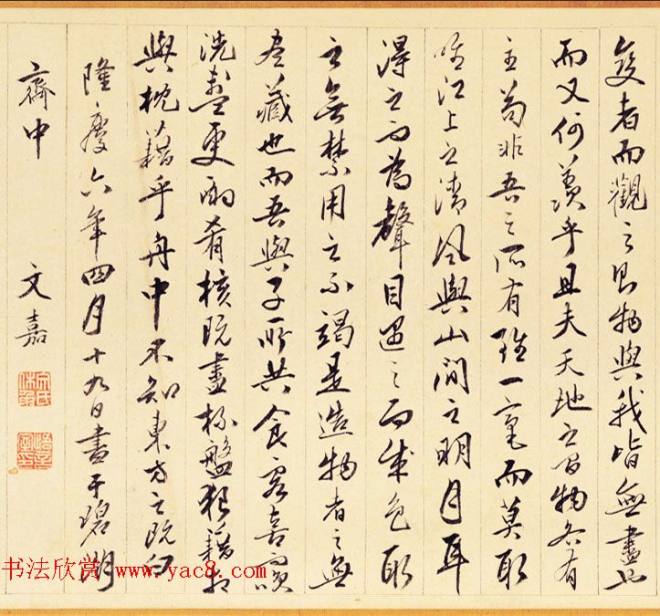 變者而觀之則物與我皆無盡也
而又何羨乎且夫天地之間物各有
主苟非吾之所有雖一毫而莫取
惟江上之清風與山間之明月耳
得之而為聲目遇之而成色取
之無禁用之不竭是造物者之無
盡藏也而吾與子所共食客喜而笑
洗盞更酌肴核既盡杯盤狼藉相
與枕藉乎舟中不知東方之既白
隆慶六年四月十九日書于碧湖
齋中 文嘉
文氏休承
书法欣赏 www.yac8.com